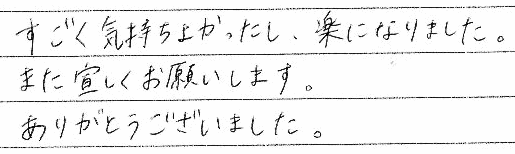 すごく気持ちよかったし、楽になりました。
また宜しくお願いします。
ありがとうございました。